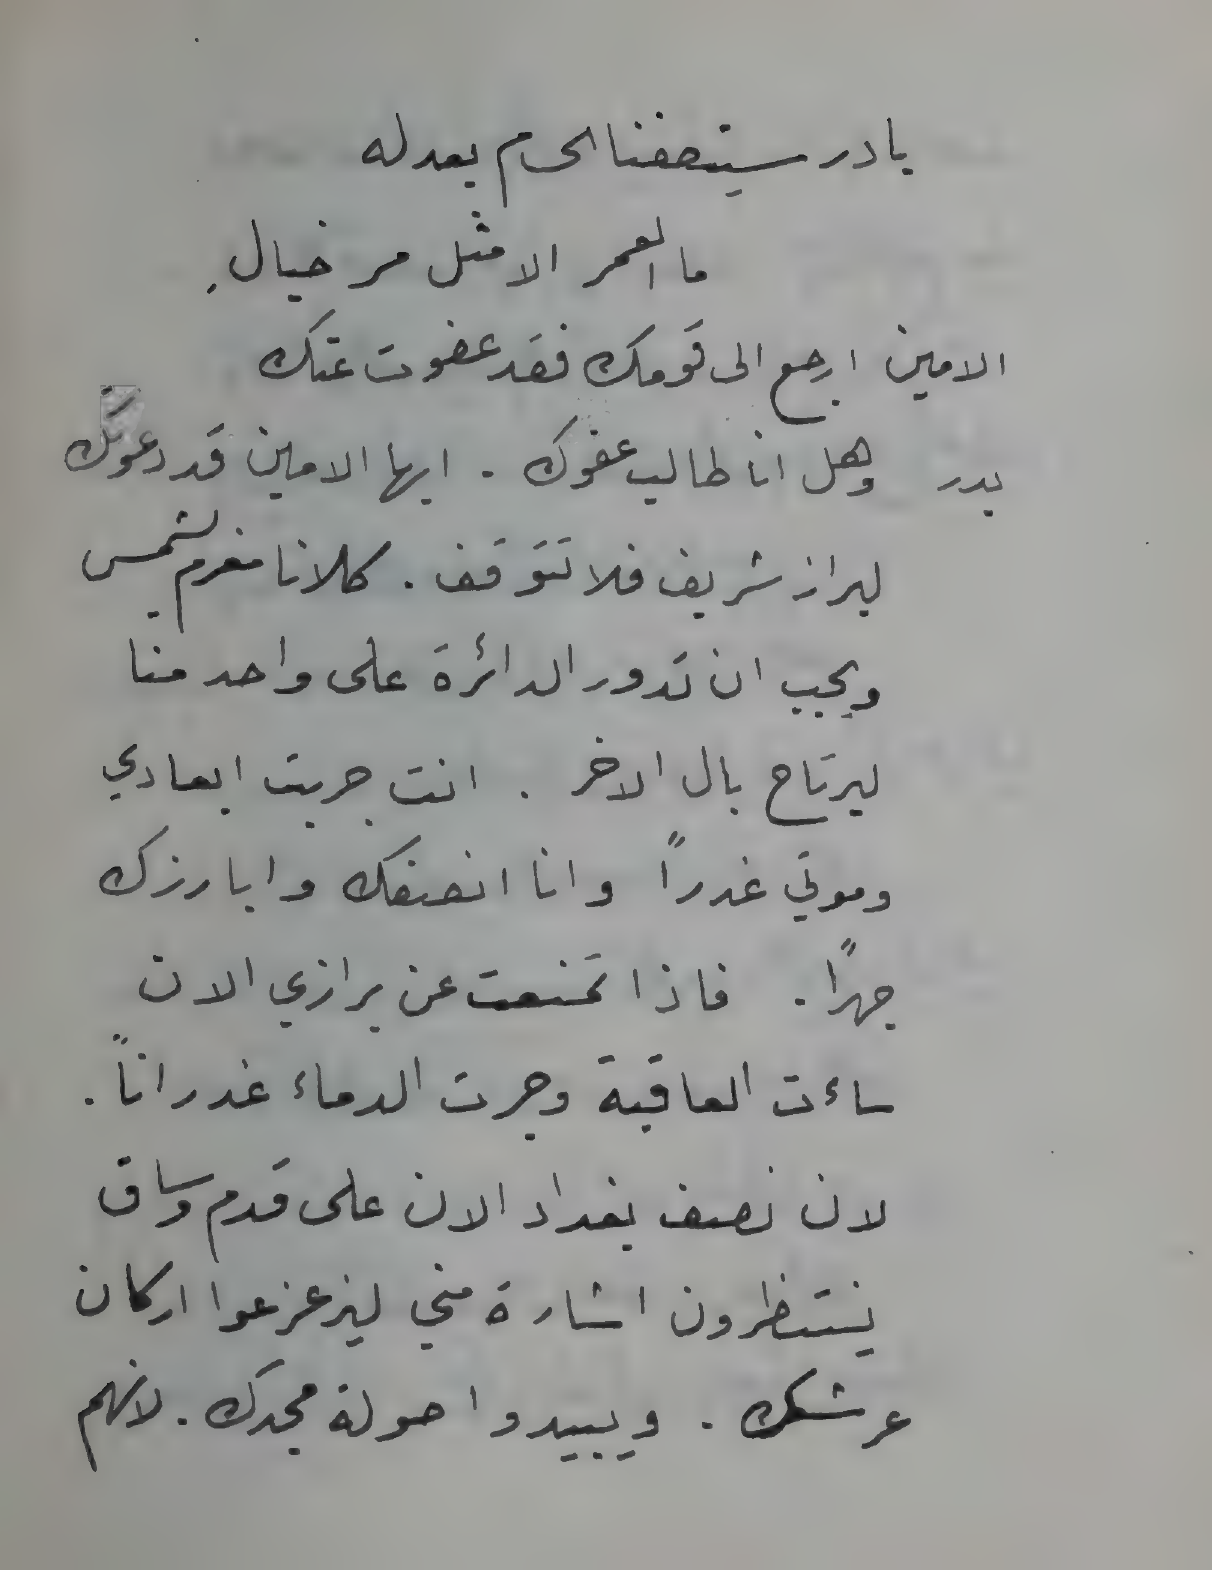 يا در سينصفنا الحمام بعدله
ما العمر الا مثل مر خيال.
الامين ارجع الى قومك فقد عفوت عنك
بدر وهل انا طالب عفوك . ايها الامين قد دعوتك
لبراز شريف فلا تتوقف . كلانا مغرم بشمس
ويجب ان تدور الدائرة على واحد منا
ليرتاح بال الاخر . انت جربت ابعادي
وموتي غدراً وانا انصفك وابارزك
جهراً . فاذا تمنعت عن برازي الان
ساءت العاقبة وجرت الدماء غدراناً .
لان نصف بغداد الان على قدم وساق
ينتظرون اشارة مني ليزعزعوا اركان
عرشك . ويبيدوا صولة مجدك . لانهم